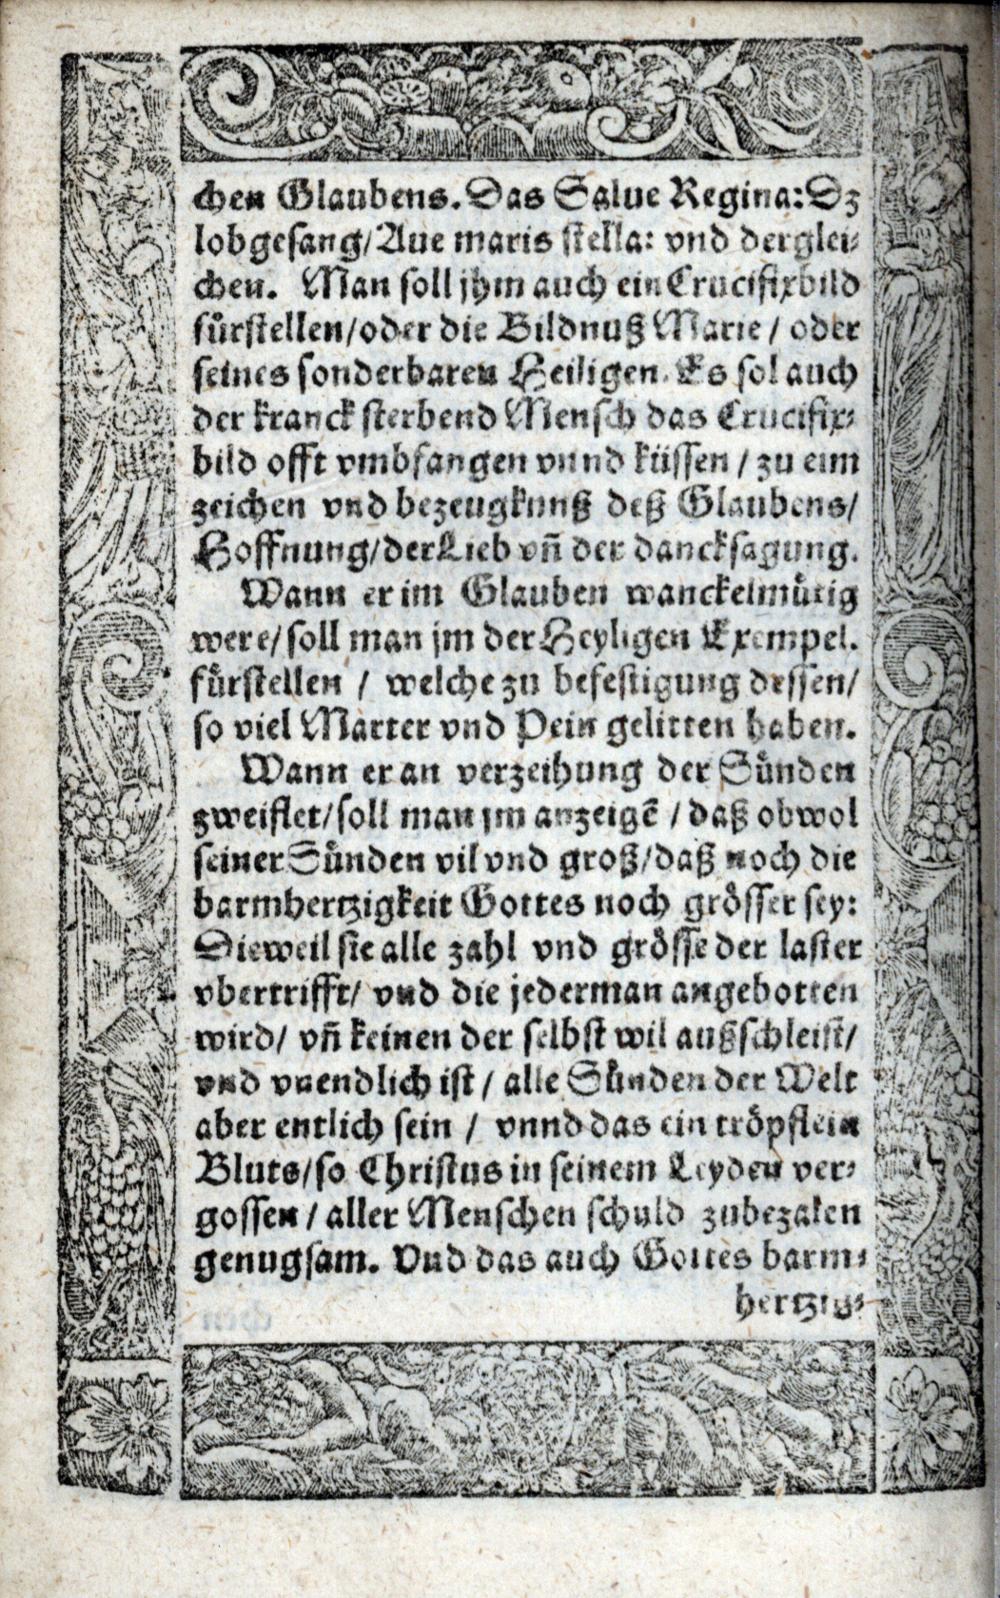 chen Glaubens. Das Salue Regina: Dz
lobgesang/ Aue maris stella: vnd derglei-
chen. Man soll jhm auch ein Crucifixbild
fürstellen/ oder die Bildnuß Marie / oder
seines sonderbaren Heiligen. Es sol auch
der kranck sterbend Mensch das Crucifix-
bild offt vmbfangen vnnd küssen / zu eim
zeichen vnd bezeugknuß deß Glaubens/
Hoffnung/ der Lieb vñ der dancksagung.
Wann er im Glauben wanckelmütig
were/ soll man jm der Heyligen Exempel.
fürstellen / welche zu befestigung dessen/
so viel Marter vnd Pein gelitten haben.
Wann er an verzeihung der Sünden
zweiflet/ soll man jm anzeigẽ / daß obwol
seiner Sünden vil vnd groß/ daß noch die
barmhertzigkeit Gottes noch grösser sey:
Dieweil sie alle zahl vnd grösse der laster
vbertrifft/ vnd die jederman angebotten
wird/ vñ keinen der selbst wil außschleist/
vnd vnendlich ist / alle Sünden der Welt
aber entlich sein / vnnd das ein tröpflein
Bluts/ so Christus in seinem Leyden ver-
gossen / aller Menschen schuld zubezalen
genugsam. Vnd das auch Gottes barm-
hertzig-